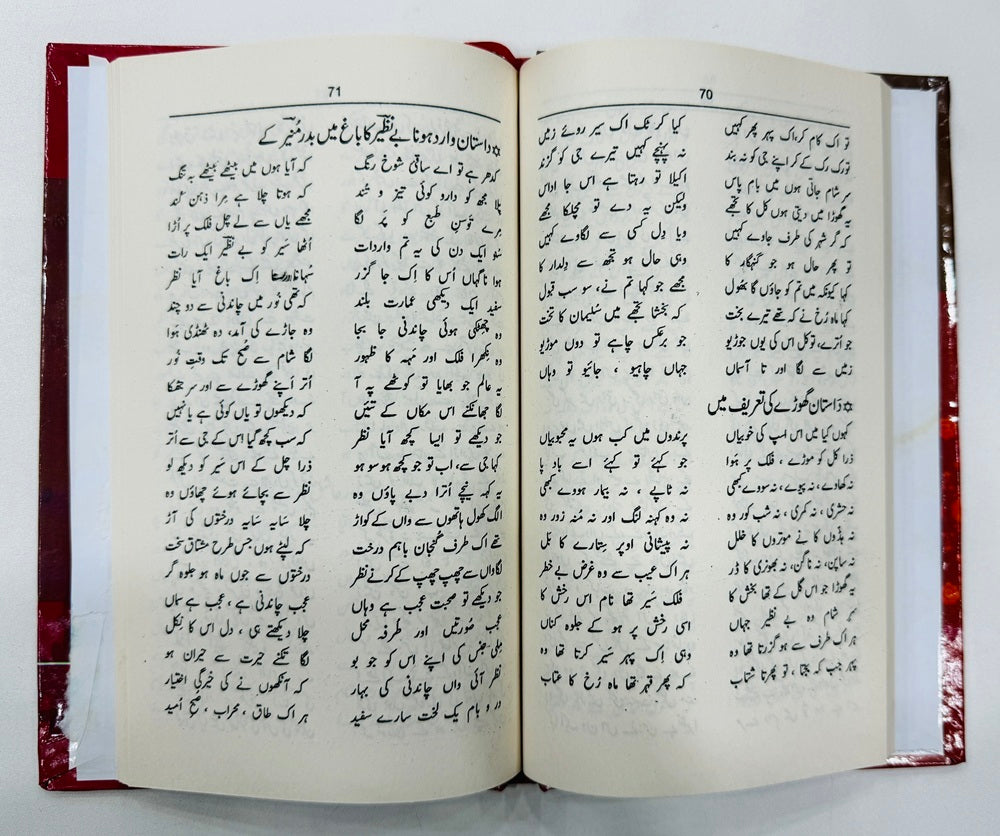 70
تو اک کام کر، اک پہر پھر کہیں کیا کر ٹک اک سیر روئے زمیں
تو رک رک کے کر اپنے جی کو نہ بند نہ پہنچے کہیں تیرے جی کو گزند
سرِ شام جاتی ہوں میں بام پاس اکیلا تو رہتا ہے اس جا اداس
یہ گھوڑا میں دیتی ہوں کل کا تجھے ولیکن یہ دے تو مچلکا مجھے
کہ گر شہر کی طرف جاوے کہیں ویا دِل کسی سے لگاوے کہیں
تو پھر حال ہو جو گنہگار کا وہی حال ہو تجھ سے دِلدار کا
کہا کیونکہ میں تم کو جاؤں گا بھول مجھے جو کہا تم نے، سو سب قبول
کہا ماہ رُخ نے کہ تھے تیرے بخت کہ بخشا تجھے میں سُلیماں کا تخت
جو اُترے، تو کل اس کی یوں جوڑیو جو بر عکس چاہے تو دوں موڑیو
زمیں سے لگا اور تا آسماں جہاں چاہیو ، جائیو تو وہاں
☆ داستان گھوڑے کی تعریف میں
کہوں کیا میں اس اسپ کی خوبیاں پرندوں میں کب ہوں یہ محبوبیاں
ذرا کل کو موڑے ، فلک پر ہوا جو کہئے تو کہئے اسے باد پا
نہ کھاوے، نہ پیوے، نہ سووے کبھی نہ ٹاپے ، نہ بیمار ہووے کبھی
نہ حشری ، نہ کمری ، نہ شب کور وہ نہ وہ کہنہ لنگ اور نہ مُنہ زور وہ
نہ ہڈوں کا نے موتروں کا خلل نہ پیشانی اوپر ستارے کا بَل
نہ ساپن، نہ ناگن، نہ بھونری کا ڈر ہر اک عیب سے وہ غرض بے خطر
یہ گھوڑا جو اس گل کے تھا بخش کا فلک سَیر تھا نام اس رخش کا
سرِ شام وہ بے نظیرِ جہاں اسی رخش پر ہو کے جلوہ کناں
ہر اک طرف سے ہو گزرتا تھا وہ وہی اِک پہر سَیر کرتا تھا وہ
پہر جب کہ بجتا ، تو پھرتا شتاب کہ پھر قہر تھا ماہ رُخ کا عتاب
71
☆ داستان وارد ہونا بے نظیر کا باغ میں بدر منیر کے
کدھر ہے تو اے ساقیِ شوخ رنگ کہ آیا ہوں میں بیٹھے بیٹھے بہ تنگ
پلا مجھ کو دارو کوئی تیز و تُند کہ ہوتا چلا ہے مِرا ذہن کُند
مِرے تَوسنِ طبع کو پَر لگا مجھے یاں سے لے چل فلک پر اُڑا
سُنو ایک دن کی یہ تم واردات اُٹھا سَیر کو بے نظیر ایک رات
ہوا ناگہاں اُس کا اِک جا گزر سُہانا اِک باغ آیا نظر
سفید ایک دیکھی عمارت بلند کہ تھی نُور میں چاندنی سے دو چند
وہ چھٹکی ہوئی چاندنی جا بجا وہ جاڑے کی آمد، وہ ٹھنڈی ہَوا
وہ نکھرا فلک اور مَہ کا ظہور لگا شام سے صُبح تک وقتِ نُور
یہ عالم جو بھایا تو کوٹھے پہ آ اُتر اَپنے گھوڑے سے اور سر جھکا
لگا جھانکنے اس مکاں کے تئیں کہ دیکھوں تو یاں کوئی ہے یا نہیں
جو دیکھے تو ایسا کچھ آیا نظر کہ سب کچھ گیا اس کے جی سے اُتر
کہا جی سے، اب تو جو کچھ ہو سو ہو ذرا چل کے اس سَیر کو دیکھ لو
یہ کہہ نیچے اُترا دبے پاؤں وہ نظر سے بچائے ہوئے چھاؤں وہ
الگ کھول ہاتھوں سے واں کے کواڑ چلا سایہ سایہ درختوں کی آڑ
تھے اک طرف گنجان باہم درخت کہ لپٹے ہوں جس طرح مشتاق سخت
لگا واں سے چھپ چھپ کے کرنے نظر درختوں سے جوں ماہ ہو جلوہ گر
جو دیکھے تو صحبت عجب ہے وہاں عجب چاندنی ہے، عجب ہے سماں
عجب صُورتیں اور طرفہ محل چلا دیکھتے ہی ، دل اس کا نِکل
مِلی جنس کی اپنے اس کو جو بو لگا تکنے حیرت سے حیران ہو
نظر آئی واں چاندنی کی بہار کہ آنکھوں نے کی خیرگی اختیار
در و بام یک لخت سارے سفید ہر اک طاق ، محراب ، صبحِ اُمید